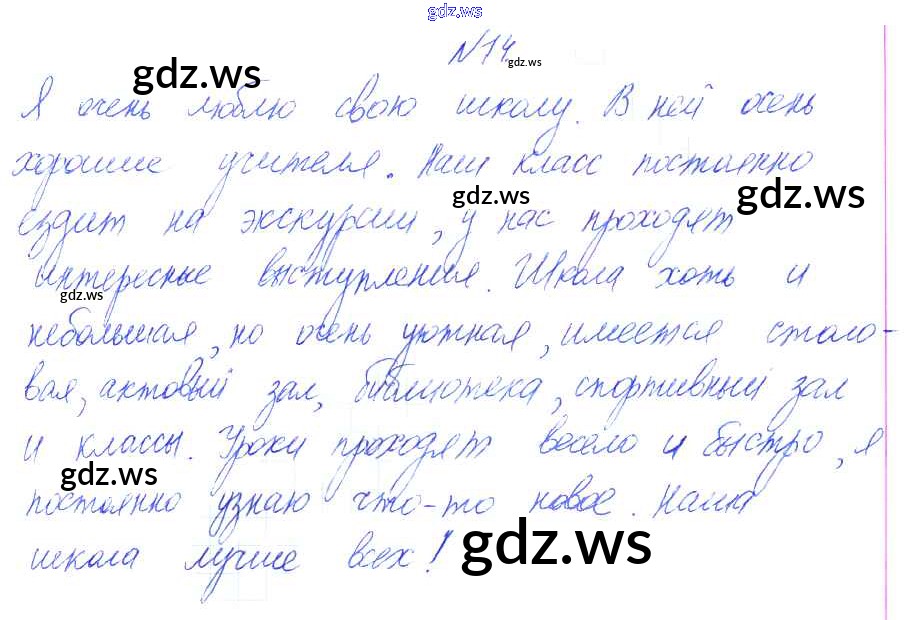 gdz.ws
N 14.
gdz.ws
gdz.ws
Я очень люблю свою школу. В ней очень
хорошие учителя. Наш класс постоянно
gdz.ws
gdz.ws
ездит на экскурсии, у нас проходят
интересные выступления. Школа хоть и
gdz.ws
небольшая, но очень уютная, имеется столо-
вая, актовый зал, библиотека, спортивный зал
и классы. Уроки проходят весело и быстро, я
gdz.ws
постоянно узнаю что-то новое. Наша
школа лучше всех!
gdz.ws